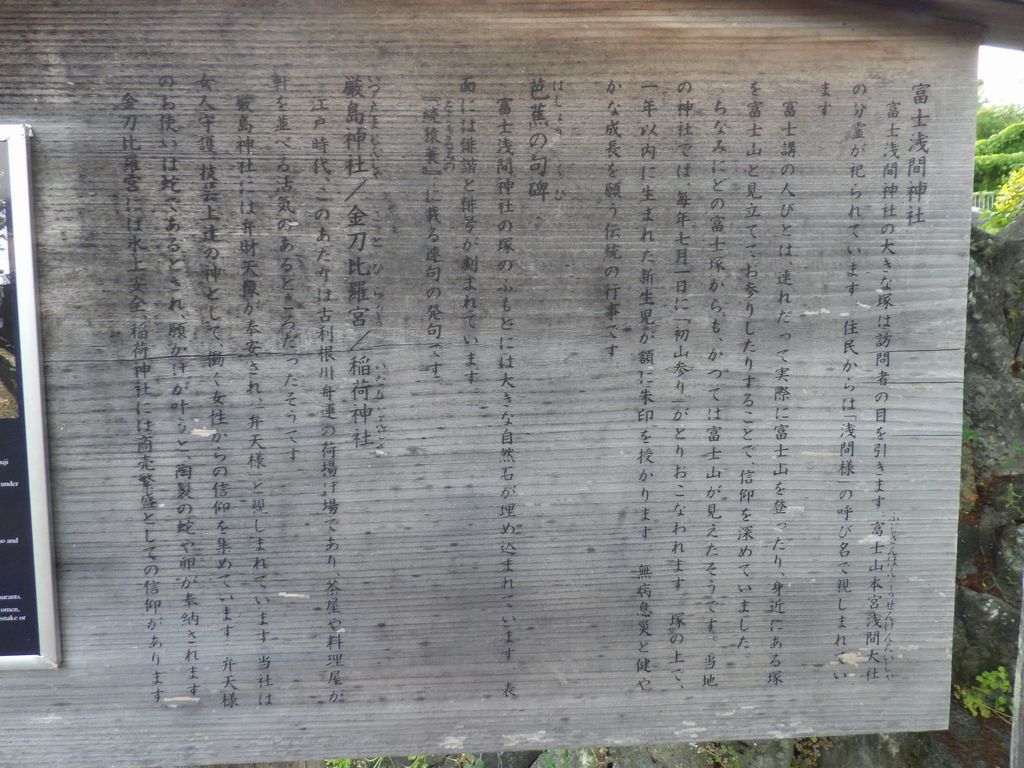 富士浅間神社
富士浅間神社の大きな塚は訪問者の目を引きます。富士山本宮浅間大社
ふじさんほんぐうせんげんたいしゃ
の分霊が祀られています。住民からは「浅間様」の呼び名で親しまれてい
ます
富士講の人びとは、連れだって実際に富士山を登ったり、身近にある塚
を富士山と見立てて、お参りしたりすることで、信仰を深めていました。
ちなみにどの富士塚からも、かつては富士山が見えたそうです。当地
の神社では、毎年七月一日に「初山参り」がとりおこなわれます。塚の上で、
一年以内に生まれた新生児が額に朱印を授かります。無病息災と健や
かな成長を願う伝統の行事です
芭蕉の句碑
ばしょう くひ
富士浅間神社の塚のふもとには大きな自然石が埋め込まれています。表
面には俳諧と俳号が刻まれています。
『続猿蓑』に載る連句の発句です。
ぞくさるみの
厳島神社／金刀比羅宮／稲荷神社
いつくしまじんじゃ ことひらぐう いなりじんじゃ
江戸時代、このあたりは古利根川舟運の荷揚げ場であり、茶屋や料理屋が
軒を並べる活気のあるところだったそうです
厳島神社には弁財天像が奉安され、弁天様と親しまれています。当社は
女人守護、技芸上達の神として、働く女性からの信仰を集めています。弁天様
のお使いは蛇であるとされ、願かけが叶うと、陶製の蛇や卵が奉納されます
金刀比羅宮には水上安全、稲荷神社には商売繁盛としての信仰があります。
uji
under
no and
urants.
omen,
snake or